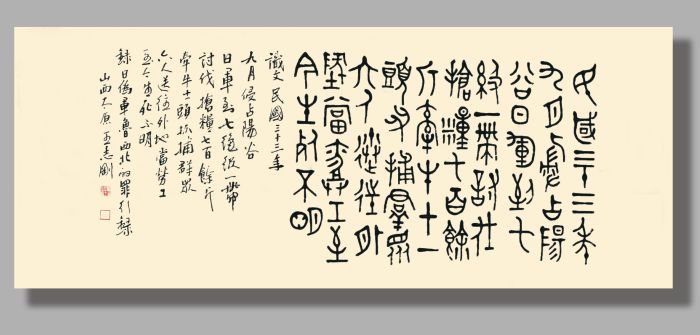 民國三十三年
九月侵占陽
谷日軍到七
級一帶討伐
搶糧七百餘
斤牽牛十一
頭抓捕羣眾
六人送往外
地當勞工至
今生死不明
識文 民國三十三年
九月侵占陽谷
日軍至七級一帶
討伐搶糧七百餘斤
牽牛十一頭抓捕群眾
六人送往外地當勞工
至今生死不明
錄日偽軍魯西北的罪行錄
山西太原 王志剛